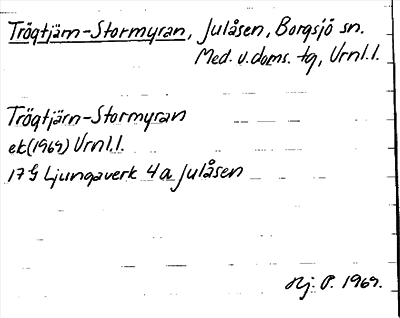 Trögtjärn-Stormyran, Julåsen, Borgsjö sn.
Med. v. doms. tg, Vrnl.l.
Trögtjärn-Stormyran
ek(1969) Vrnl.l.
17G Ljungaverk 4a Julåsen
Hj. P. 1969.